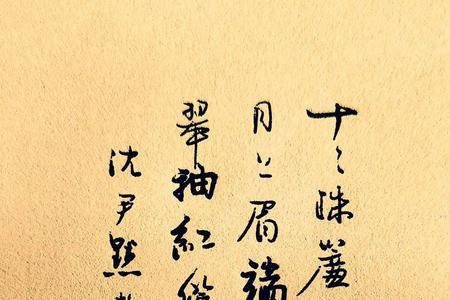 十二珠簾
月上眉端
翠袖紅
沈尹默